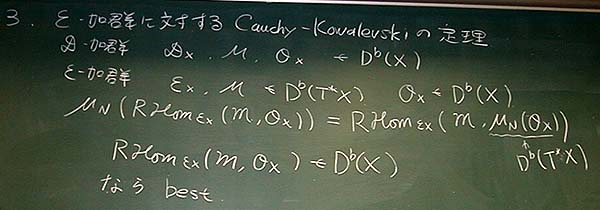 3. ℰ-加群に対する Cauchy-Kovalevskiの定理
𝒟-加群 𝒟x, ℳ, 𝒪x ∈ D^b(X)
ℰ-加群 ℰx, ℳ ∈ D^b(T*X) 𝒪x ∈ D^b(X)
μ_N(Rℋom_ℰx(ℳ, 𝒪x)) = Rℋom_ℰx(ℳ, μ_N(𝒪x))
↑
D^b(T*X)
Rℋom_ℰx(ℳ, 𝒪x) ∈ D^b(X)
なら best.